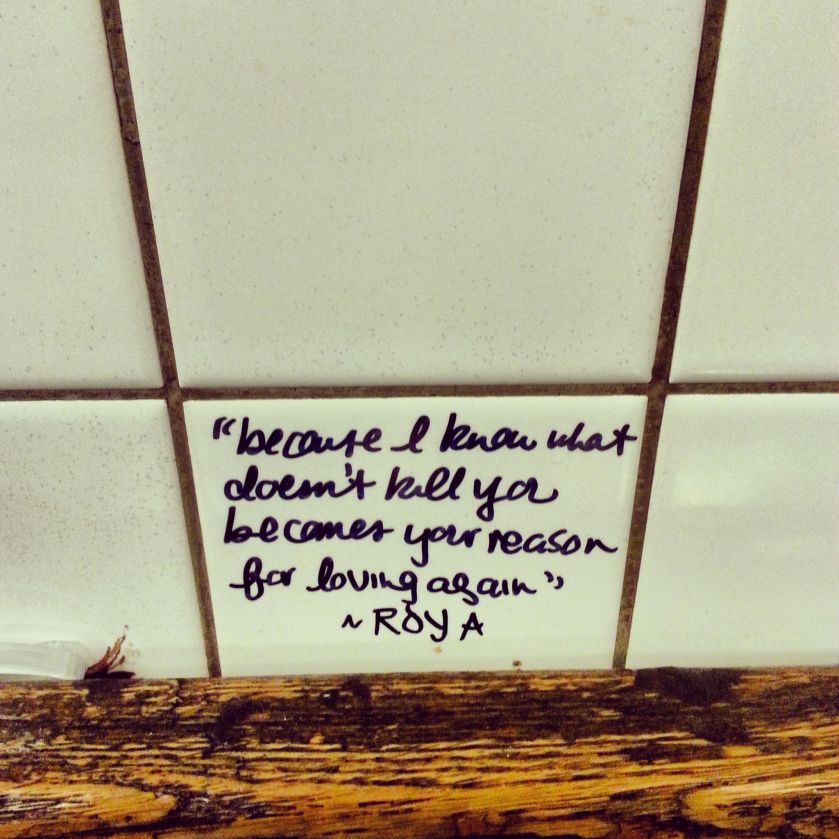 "because I know what
doesn't kill you
becomes your reason
for loving again"
~ ROYA